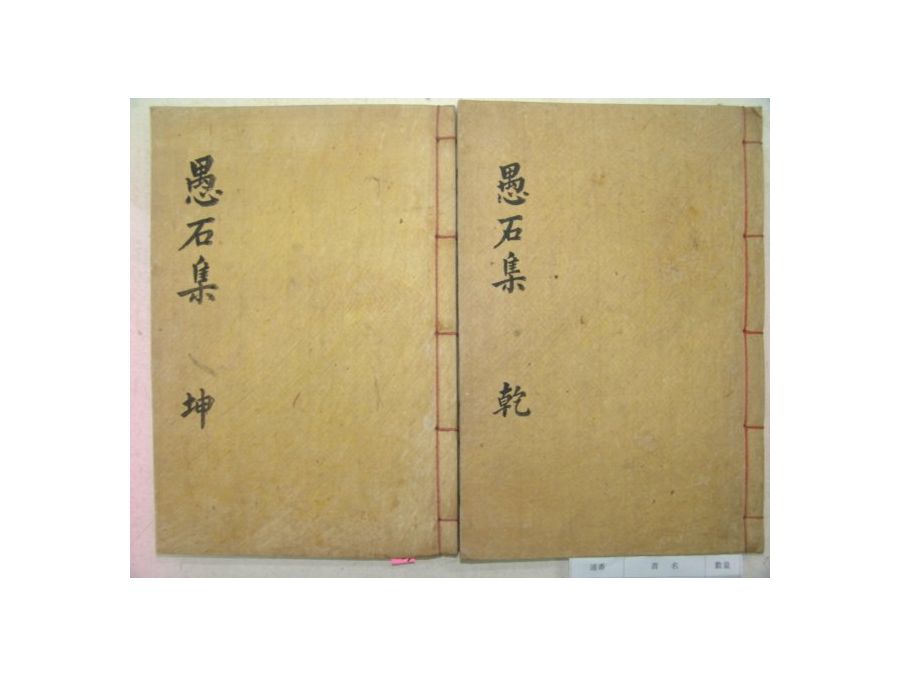 愚石集 乾
愚石集 坤
通番 書名 數量